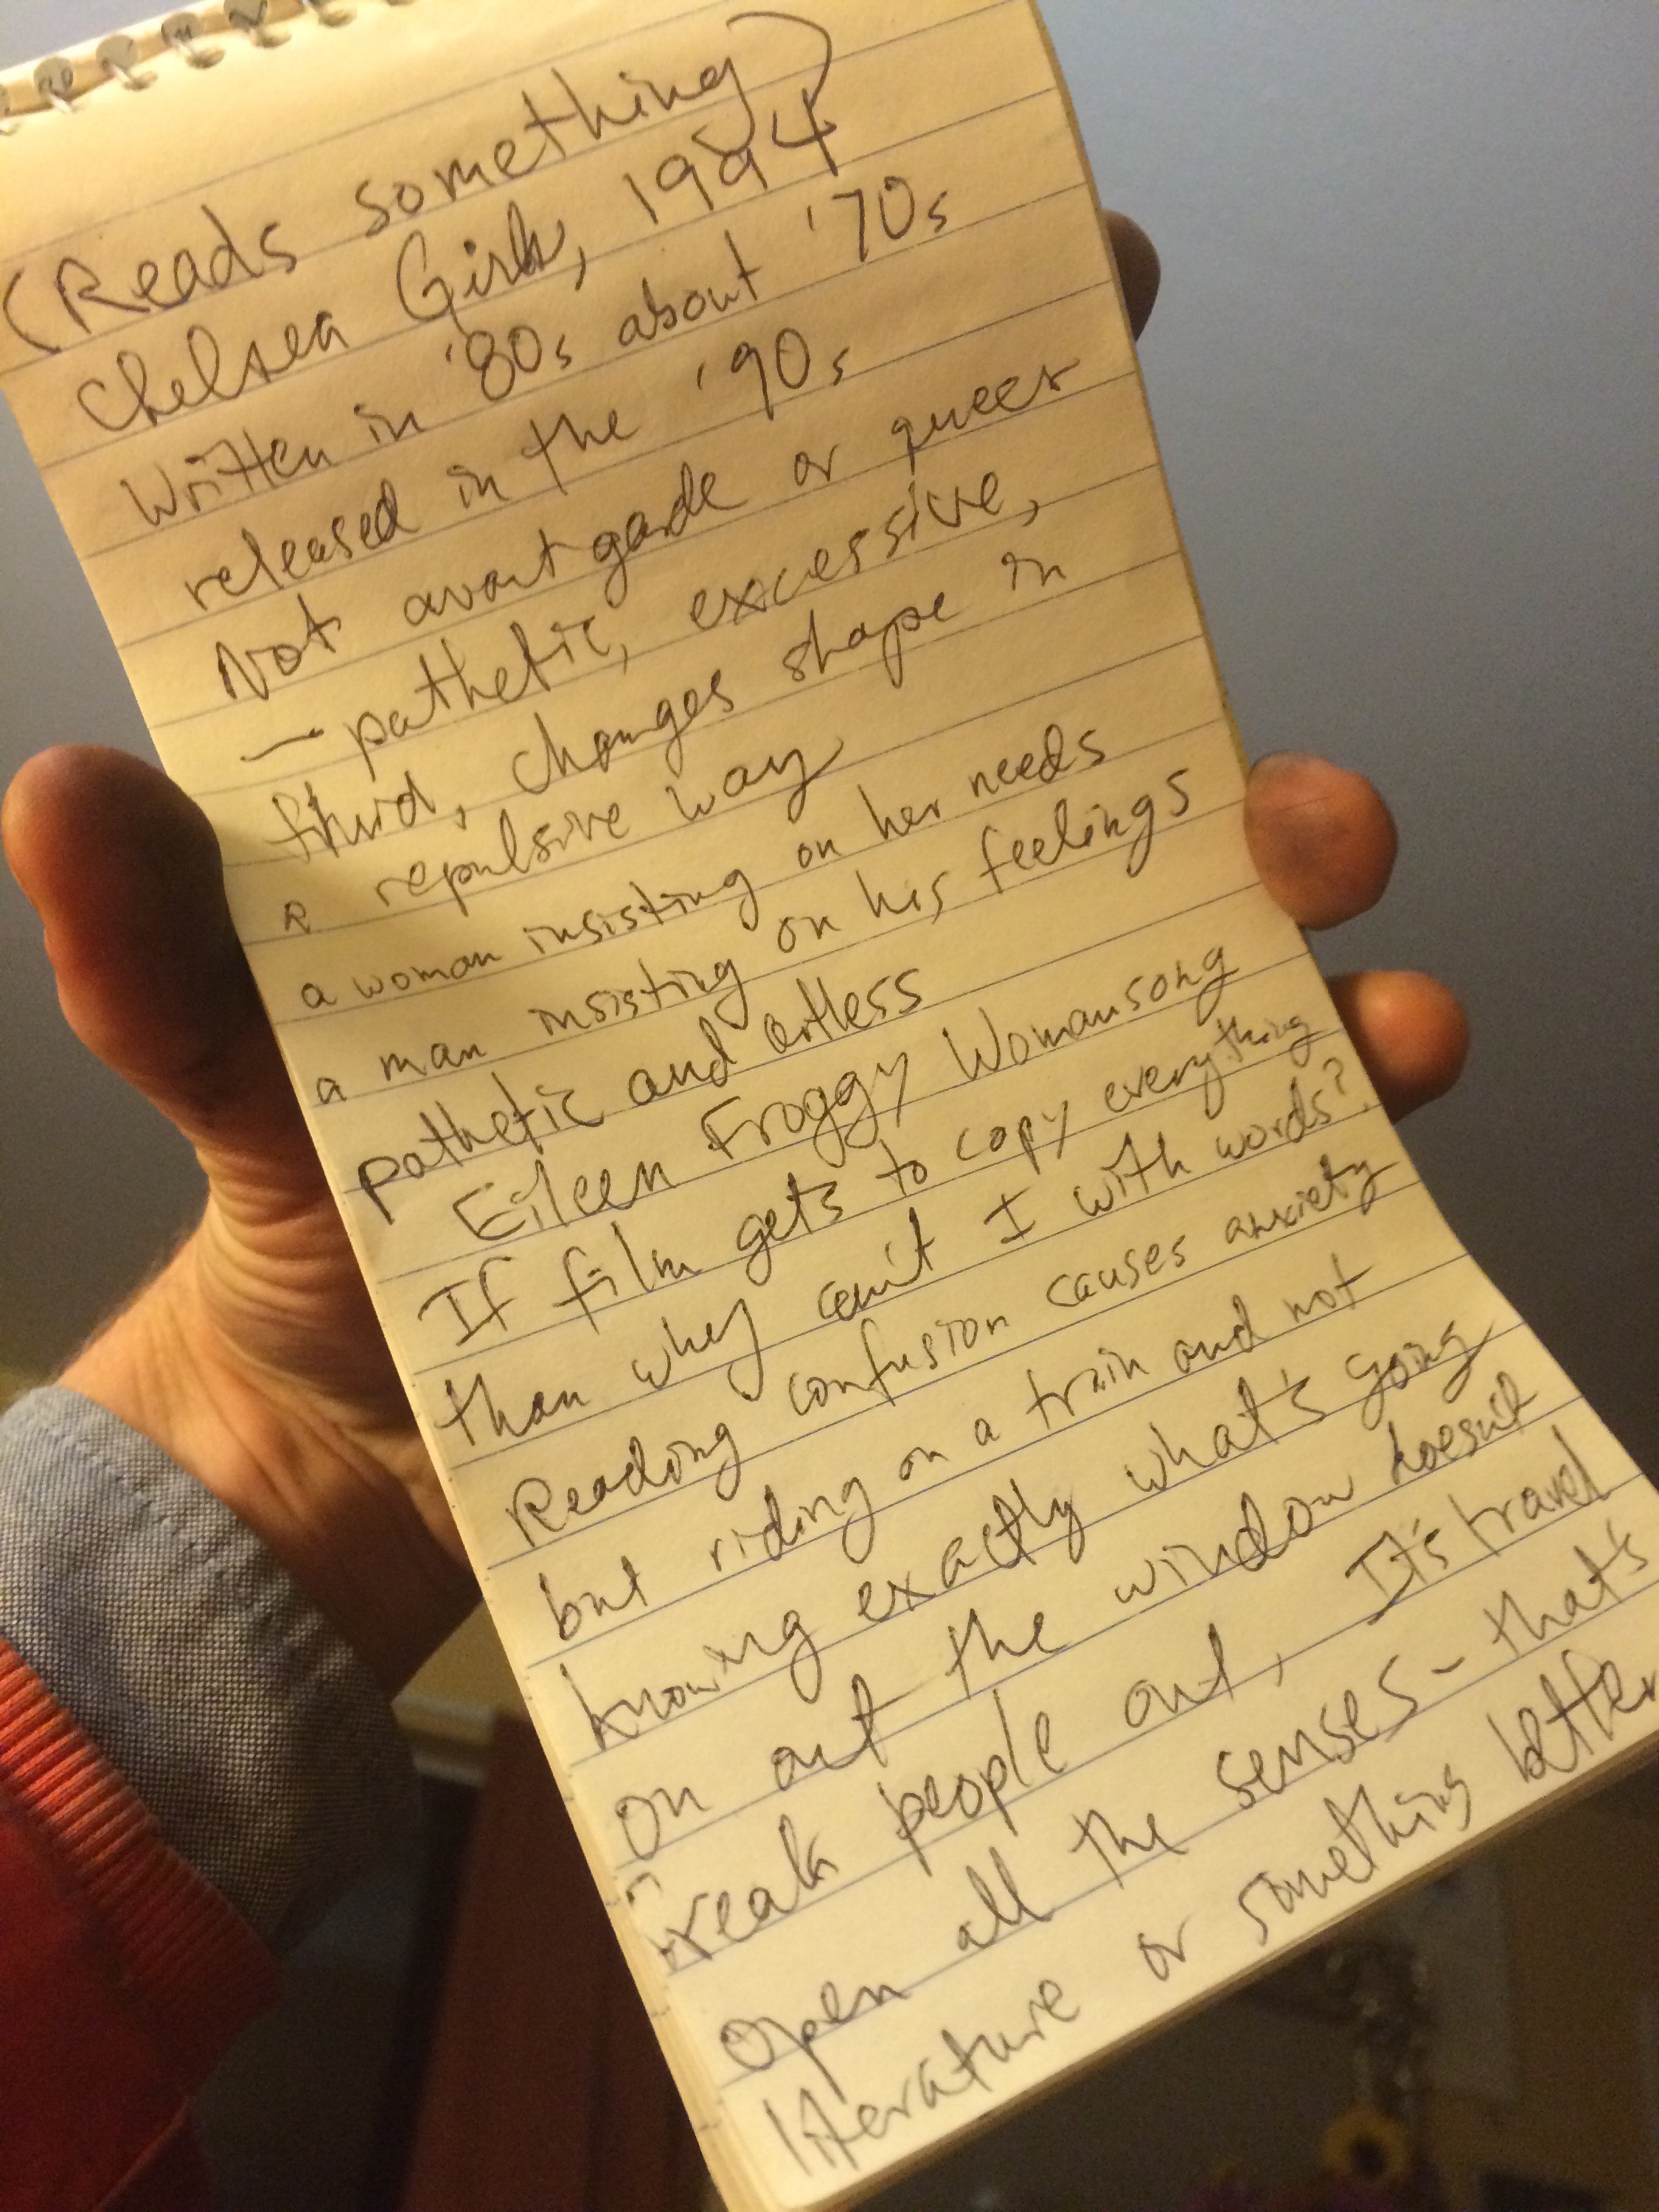 (Reads something)
Chelsea Girls, 1994
Written in '80s about '70s
released in the '90s
Not avant garde or queer
— pathetic, excessive,
fluid, changes shape in
a repulsive way
a woman insisting on her needs
a man insisting on his feelings
pathetic and artless
Eileen Froggy Womansong
If film gets to copy everything
than why can't I with words?
Reading confusion causes anxiety
but riding on a train and not
knowing exactly what's going
on out the window doesn't
freak people out, It's travel
Open all the senses - that's
literature or something better